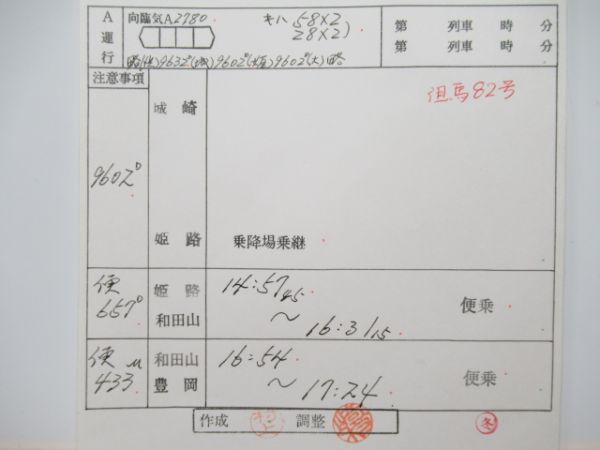 A運行
向臨気A2780
キハ 58×2
28×2)
第 列車 時 分
第 列車 時 分
9632ᴰ 9602ᴰ 9602ᴰ
注意事項
但馬82号
城崎
9602ᴰ
姫路 乗降場乗継
便 657ᴰ
姫路 14:57 45
和田山 〜 16:31 15
便乗
便 433ᴹ
和田山 16:54
豊岡 〜 17:24
便乗
作成 調整
冬